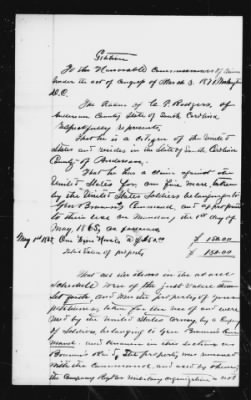 Petition
To the Honorable Commissioners of Claims
under the act of Congress of March 3. 1871 Washington
D.C.
The Claim of C. P. Rodgers, of
Anderson County State of South Carolina
respectfully represents,
That he is a citizen of the United
States and resides in the State of South Carolina
County of Anderson.
That he has a claim against the
United States for one fine mare taken
by the United States Soldiers belonging to
Gen Brown's Command, and appropriated
to their use on Monday, the 1st day of
May 1865, as follows
May 1st 1865 One Iron Horse @ $150.00 $ 150.00
Total Value of property $ 150.00
That all the items in the above
schedule were of the just value therein
set forth, and were the property of your
petitioner, taken for the use of and were
used by the United States Army by a
of Soldiers, belonging to Gen Brown's
mand, and known in this section as
the property was removed
with the Command, and used by them,
the Company Reg or military organization is not